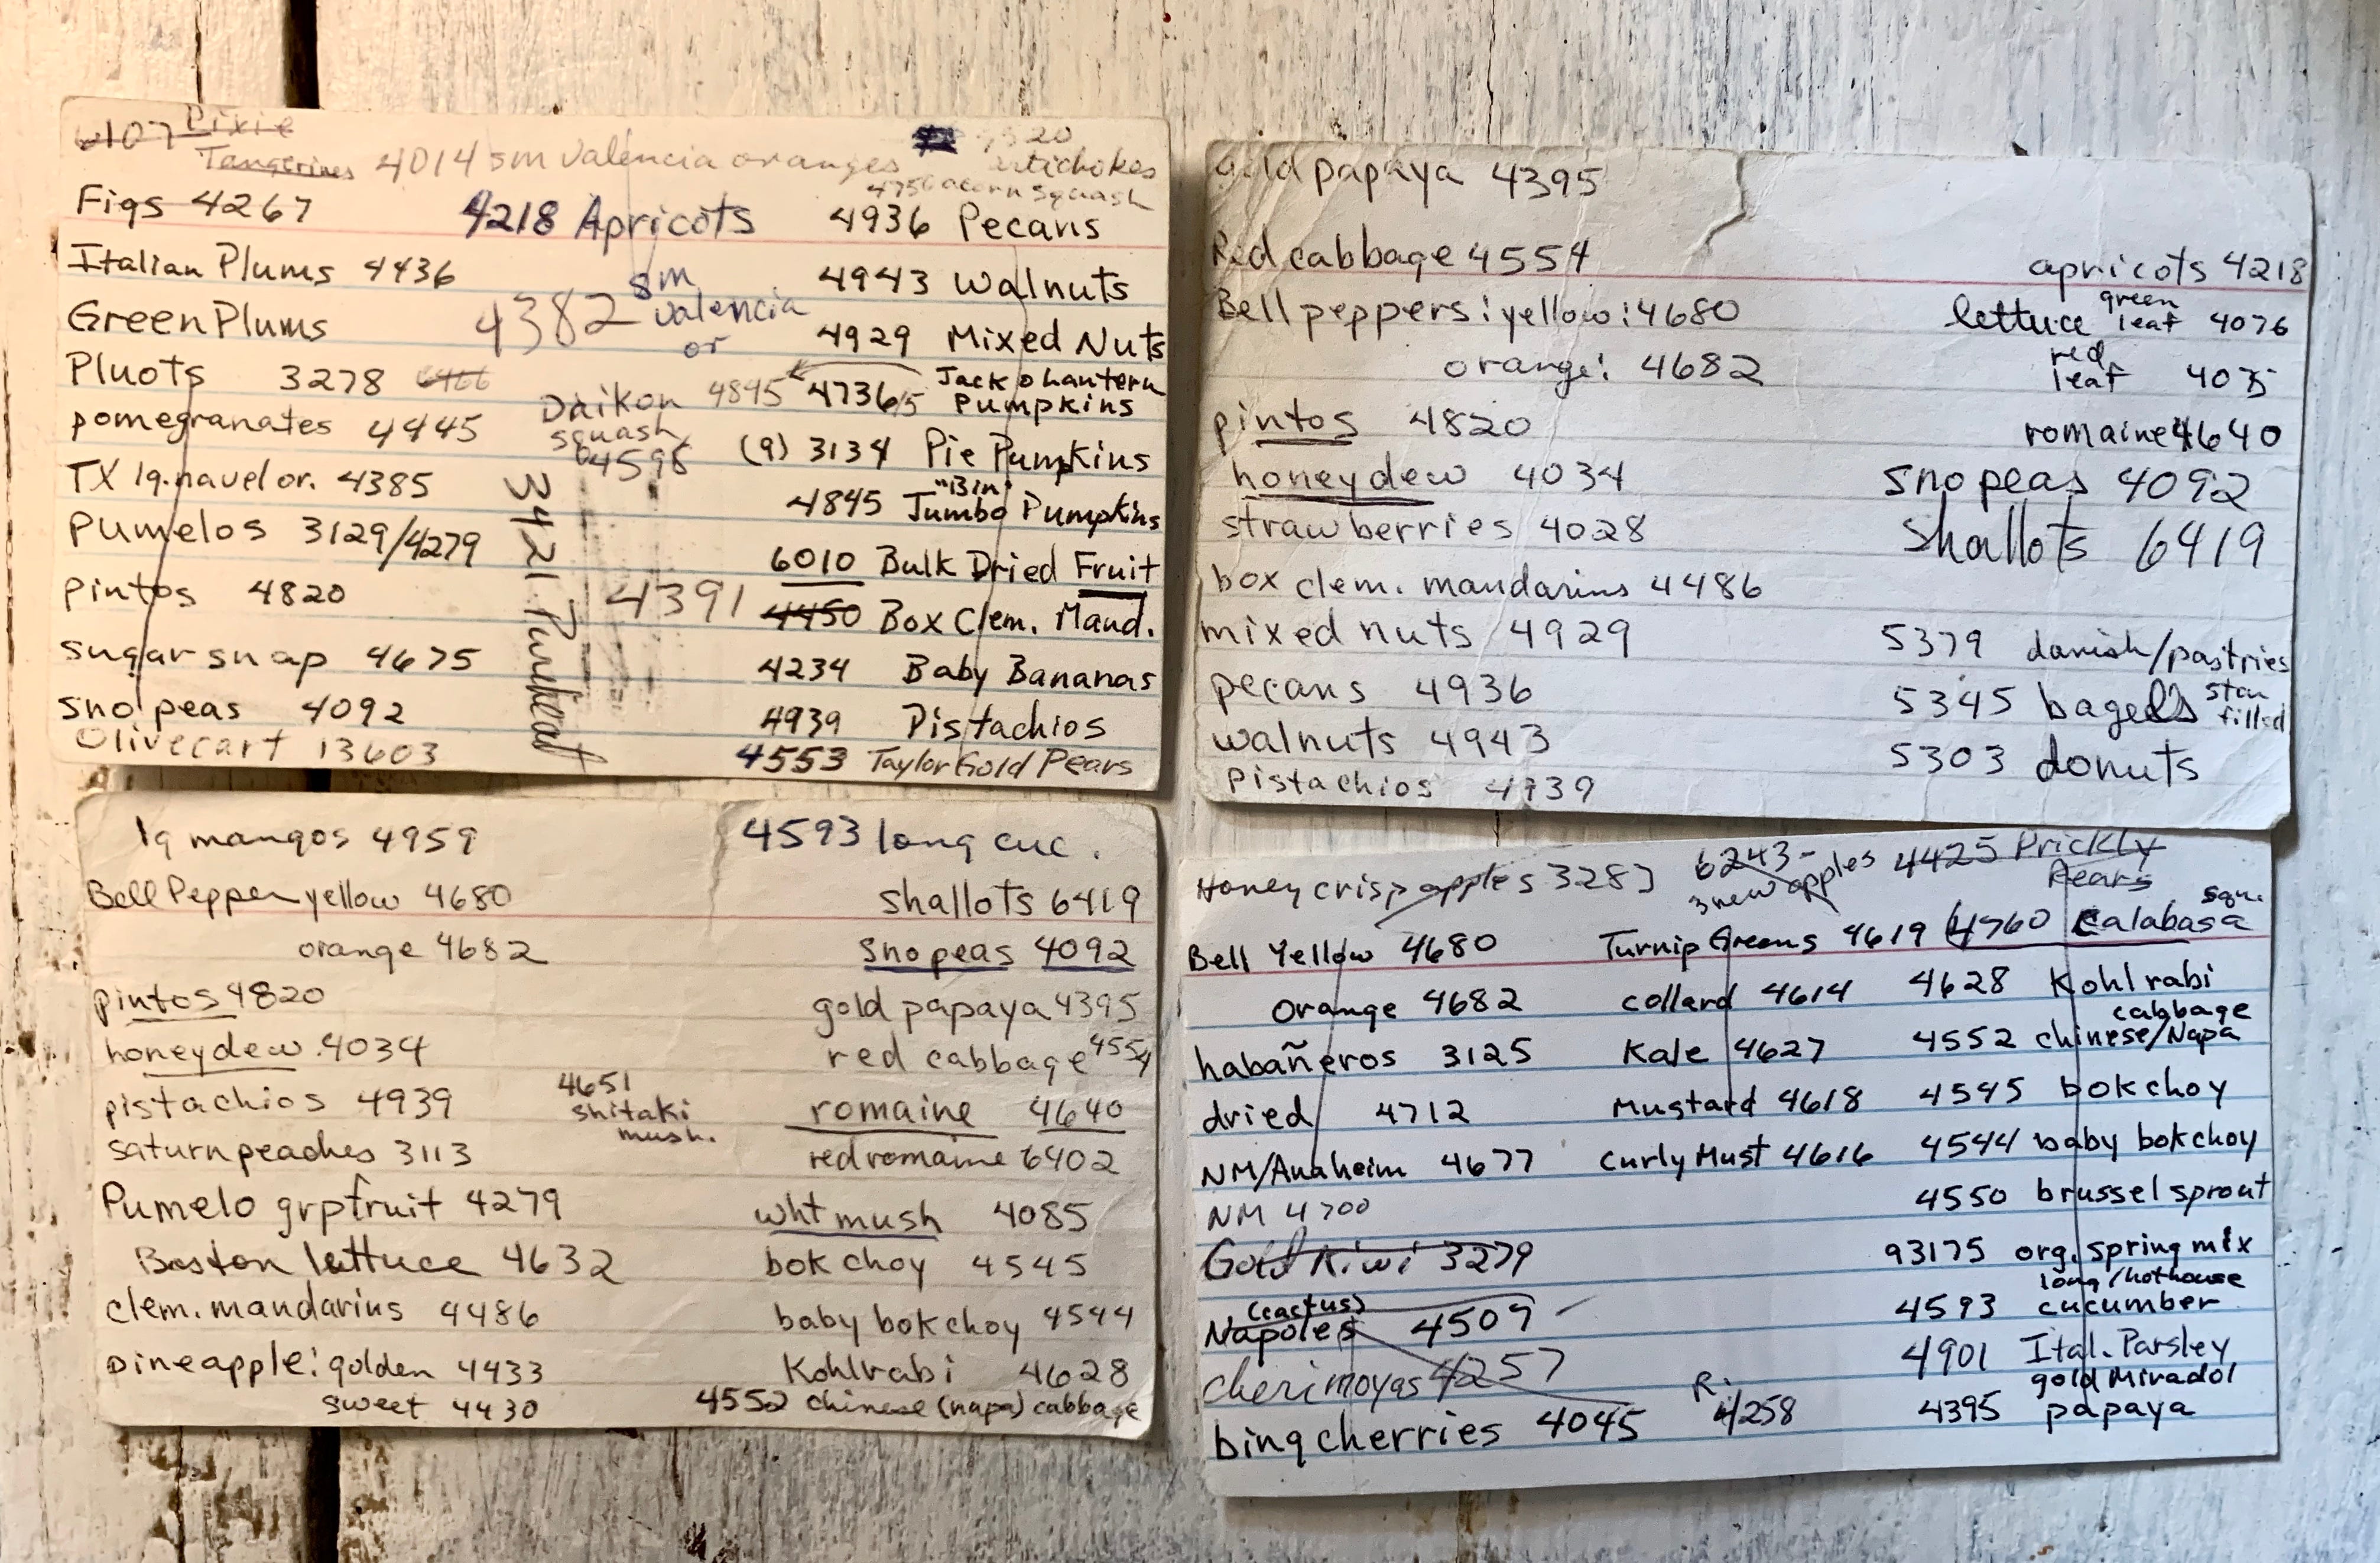 6107 Pixie
Tangerines 4014 sm Valencia oranges 4320 artichokes
acorn squash
Figs 4267
Italian Plums 4436
Green Plums
Pluots 3278
pomegranates 4445
TX lg. navel or. 4385
Pumelos 3129/4279
pintos 4820
sugar snap 4675
sno peas 4092
Olive cart 13603
4218 Apricots
4382 sm
Valencia
or
Daikon 4895
squash
4596
3421 Purpleheart
4391
4936 Pecans
4943 Walnuts
4929 Mixed Nuts
4736/5 Jack o Lantern
Pumpkins
(9) 3134 Pie Pumpkins
"Bin"
4845 Jumbo Pumpkins
6010 Bulk Dried Fruit
4450 Box Clem. Mand.
4234 Baby Bananas
4939 Pistachios
4553 Taylor Gold Pears
gold papaya 4395
Red cabbage 4554
Bell peppers: yellow: 4680
orange: 4682
pintos 4820
honeydew 4034
strawberries 4028
box clem. mandarins 4486
mixed nuts 4929
pecans 4936
walnuts 4943
Pistachios 4939
apricots 4218
lettuce green leaf 4076
red leaf 4075
romaine 4640
sno peas 4092
shallots 6419
5379 danish/pastries
5345 bagels
filled
5303 donuts
lg mangos 4959
Bell Pepper yellow 4680
orange 4682
pintos 4820
honeydew 4034
pistachios 4939
saturn peaches 3113
Pumelo grpfruit 4279
Boston lettuce 4632
clem. mandarins 4486
pineapple: golden 4433
sweet 4430
4651
shitaki
mush.
4593 long cuc.
shallots 6419
snopeas 4092
gold papaya 4395
red cabbage 4554
romaine 4640
red romaine 6402
wht mush 4085
bok choy 4545
baby bok choy 4544
Kohlrabi 4628
4552 chinese (napa) cabbage
Honey crisp apples 3283
6243-
3 new apples
4425 Prickly
Pears
Bell Yellow 4680
Orange 4682
habañeros 3125
dried 4712
NM/Anaheim 4677
NM 4700
Gold Kiwi 3279
(cactus)
Napoles 4509
cherimoyas 4257
bing cherries 4045
R. 4258
Turnip Greens 4619
collard 4614
Kale 4627
Mustard 4618
Curly Must 4616
squ.
4760 Calabasa
4628 Kohlrabi
cabbage
4552 chinese/Napa
4545 bok choy
4544 baby bok choy
4550 brussel sprout
93175 org. spring mix
long/hothouse
4593 cucumber
4901 Ital. Parsley
gold Miradol
4395 papaya